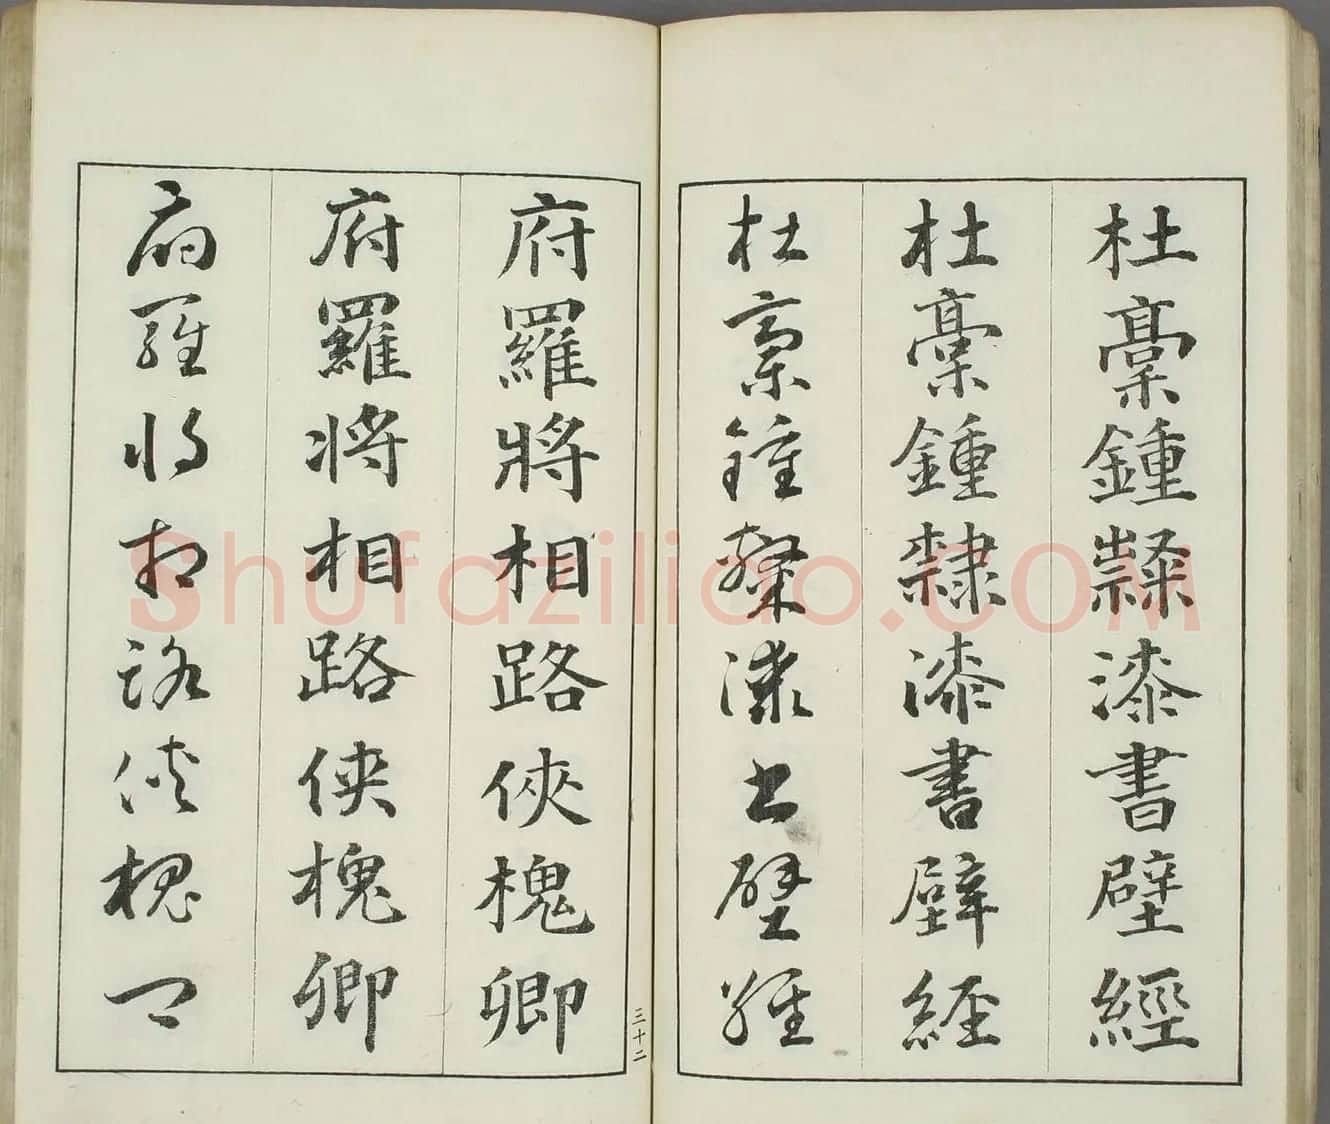 杜稾鍾隸漆書壁經
杜稾鍾隸漆書壁經
杜稾鍾隸漆書壁經
府羅將相路俠槐卿
府羅将相路侠槐卿
府羅将相路侠槐卿
三十二
Shufaziliao.COM